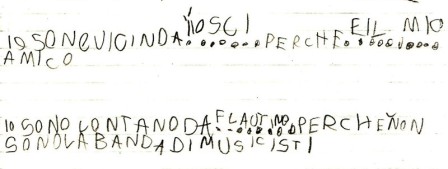 IO SONO VICIN DA YOSCI PERCHE E IL MIO
AMICO
IO SONO LONTANO DA FLAUTINO PERCHE NON
SONO LA BANDA DI MUSICISTI